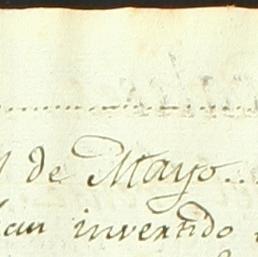 de Mayo..
han invertido